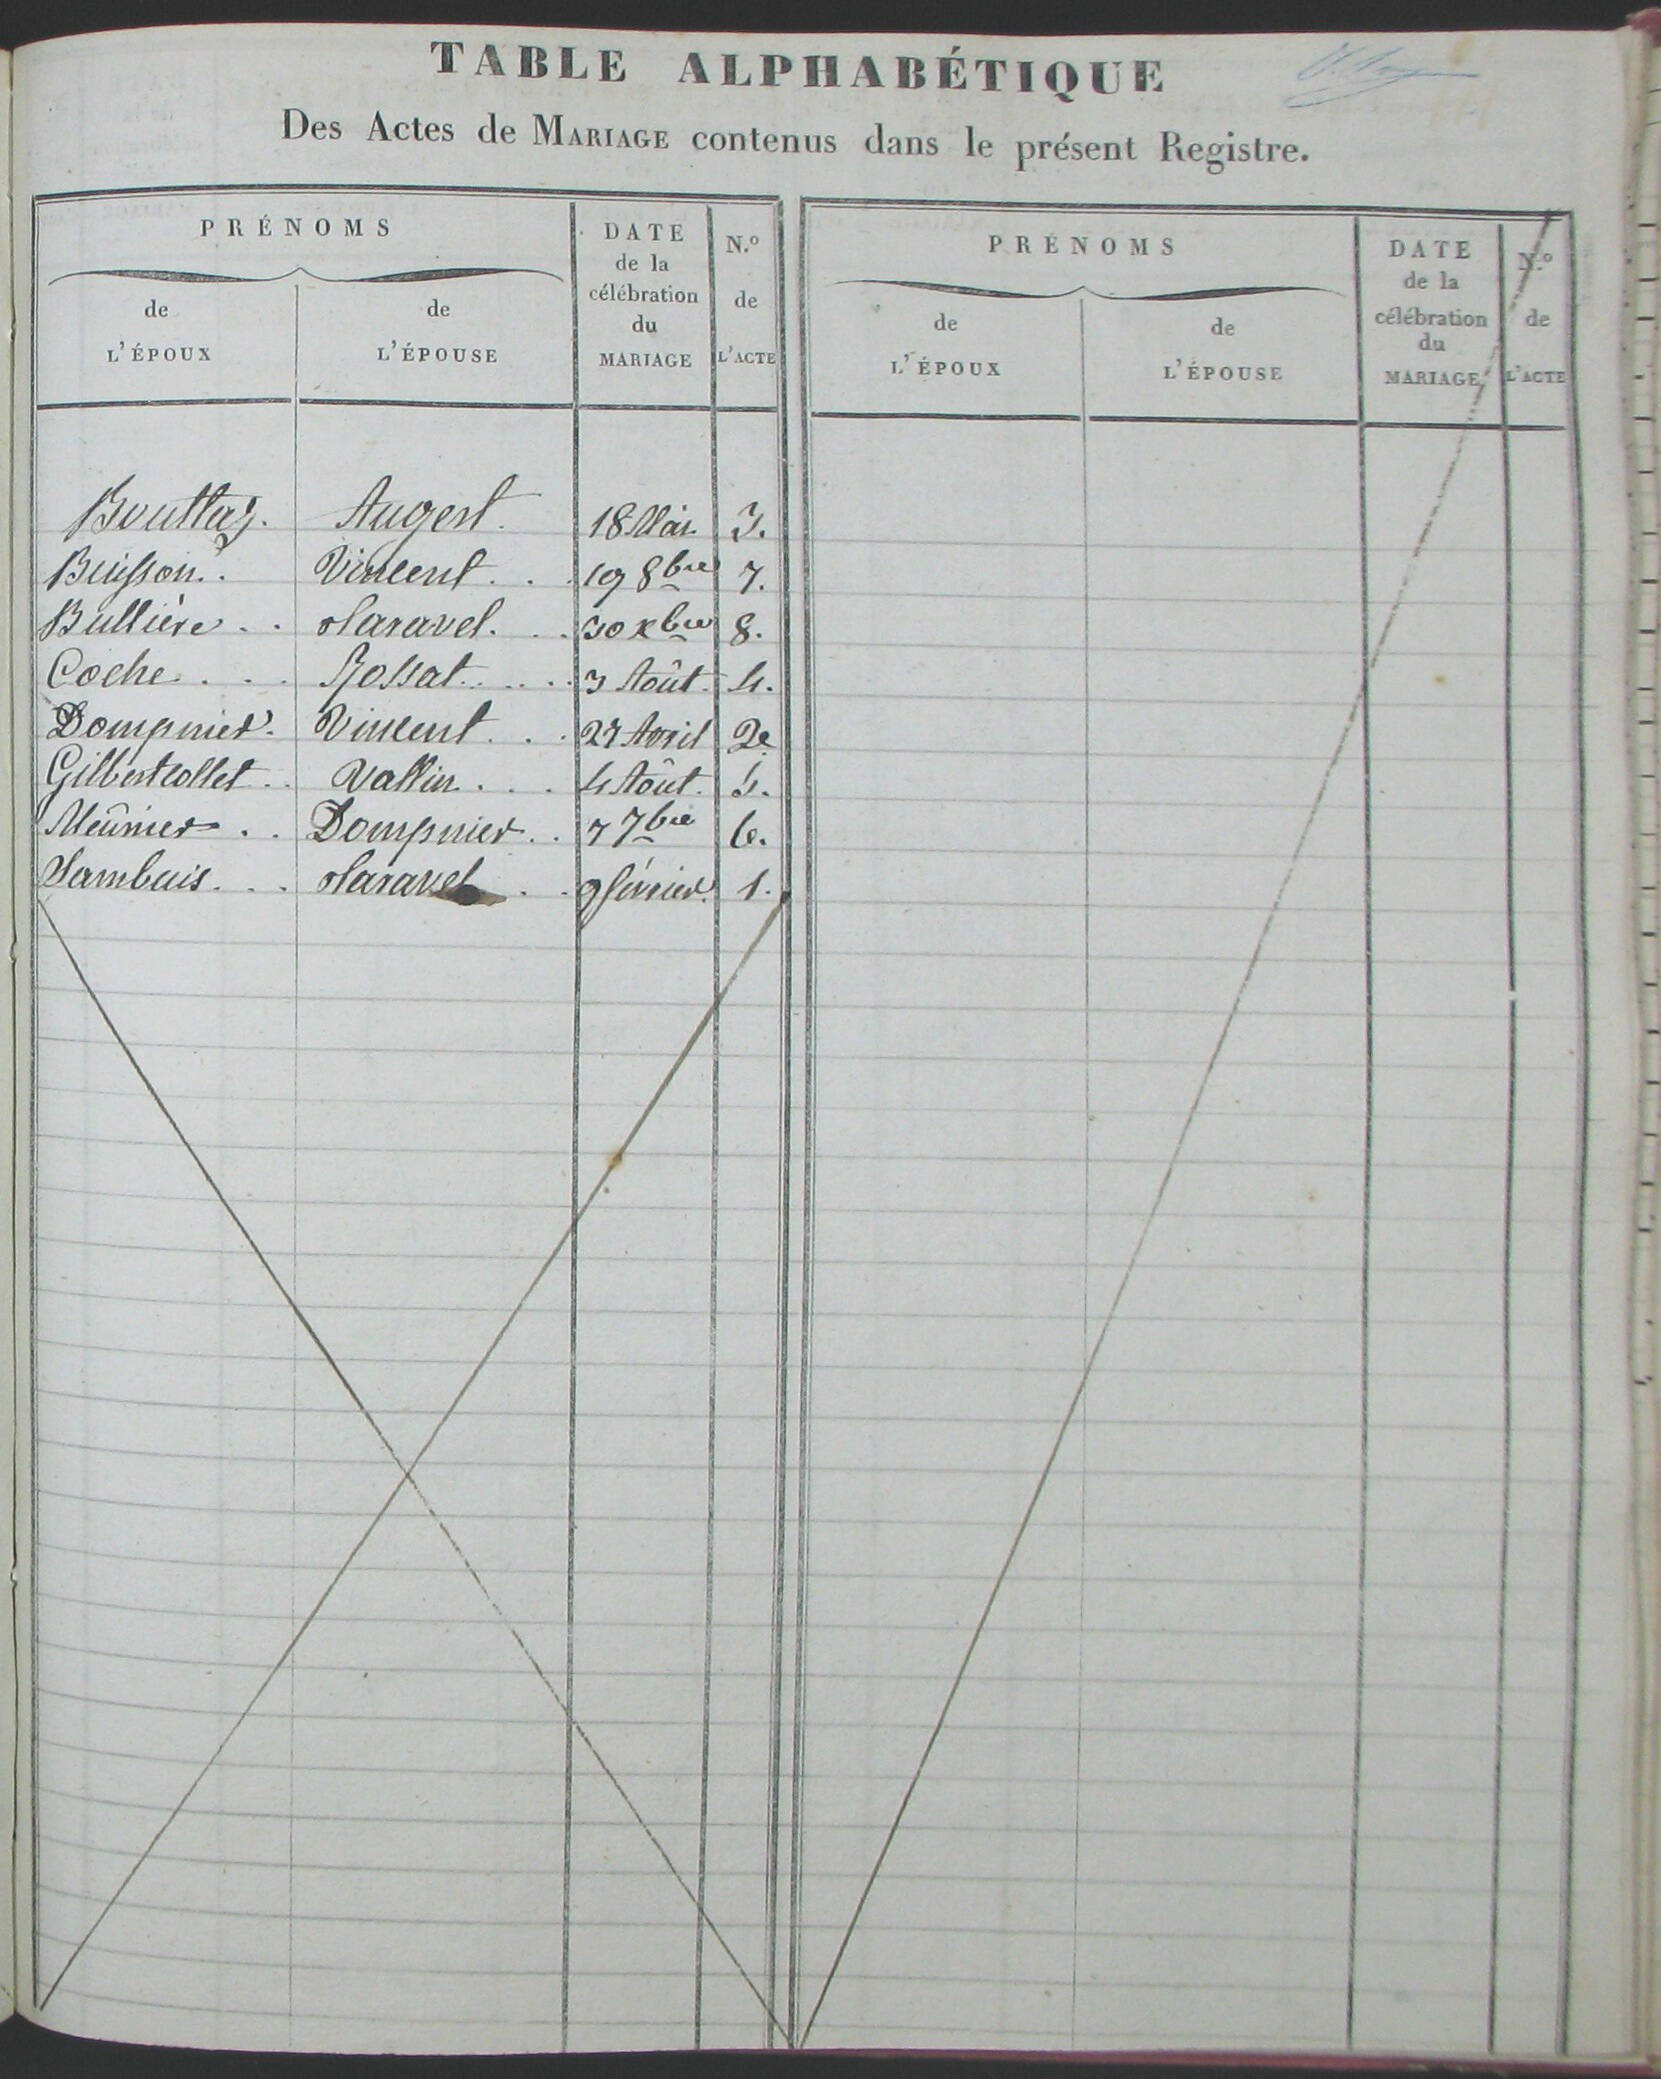 TABLE ALPHABÉTIQUE
Des Actes de MARIAGE contenus dans le présent Registre.
PRÉNOMS
de L'ÉPOUX
de L'ÉPOUSE
DATE de la célébration du MARIAGE
N.º de L'ACTE
PRÉNOMS
de L'ÉPOUX
de L'ÉPOUSE
DATE de la célébration du MARIAGE
N.º de L'ACTE
Bouttaz. Augert. 18 Mai 3.
Buisson. Vincent 19 8bre 7.
Bullière Naravel. 30 xbre 8.
Coche Rossat 3 Août 4.
Dompnier. Vincent 27 Avril 2e
Gilbertcollet Vallin 4 Août. 5.
Meûnier Dompnier 7 7bre 6.
Sambuis Naravel 9 février. 1.